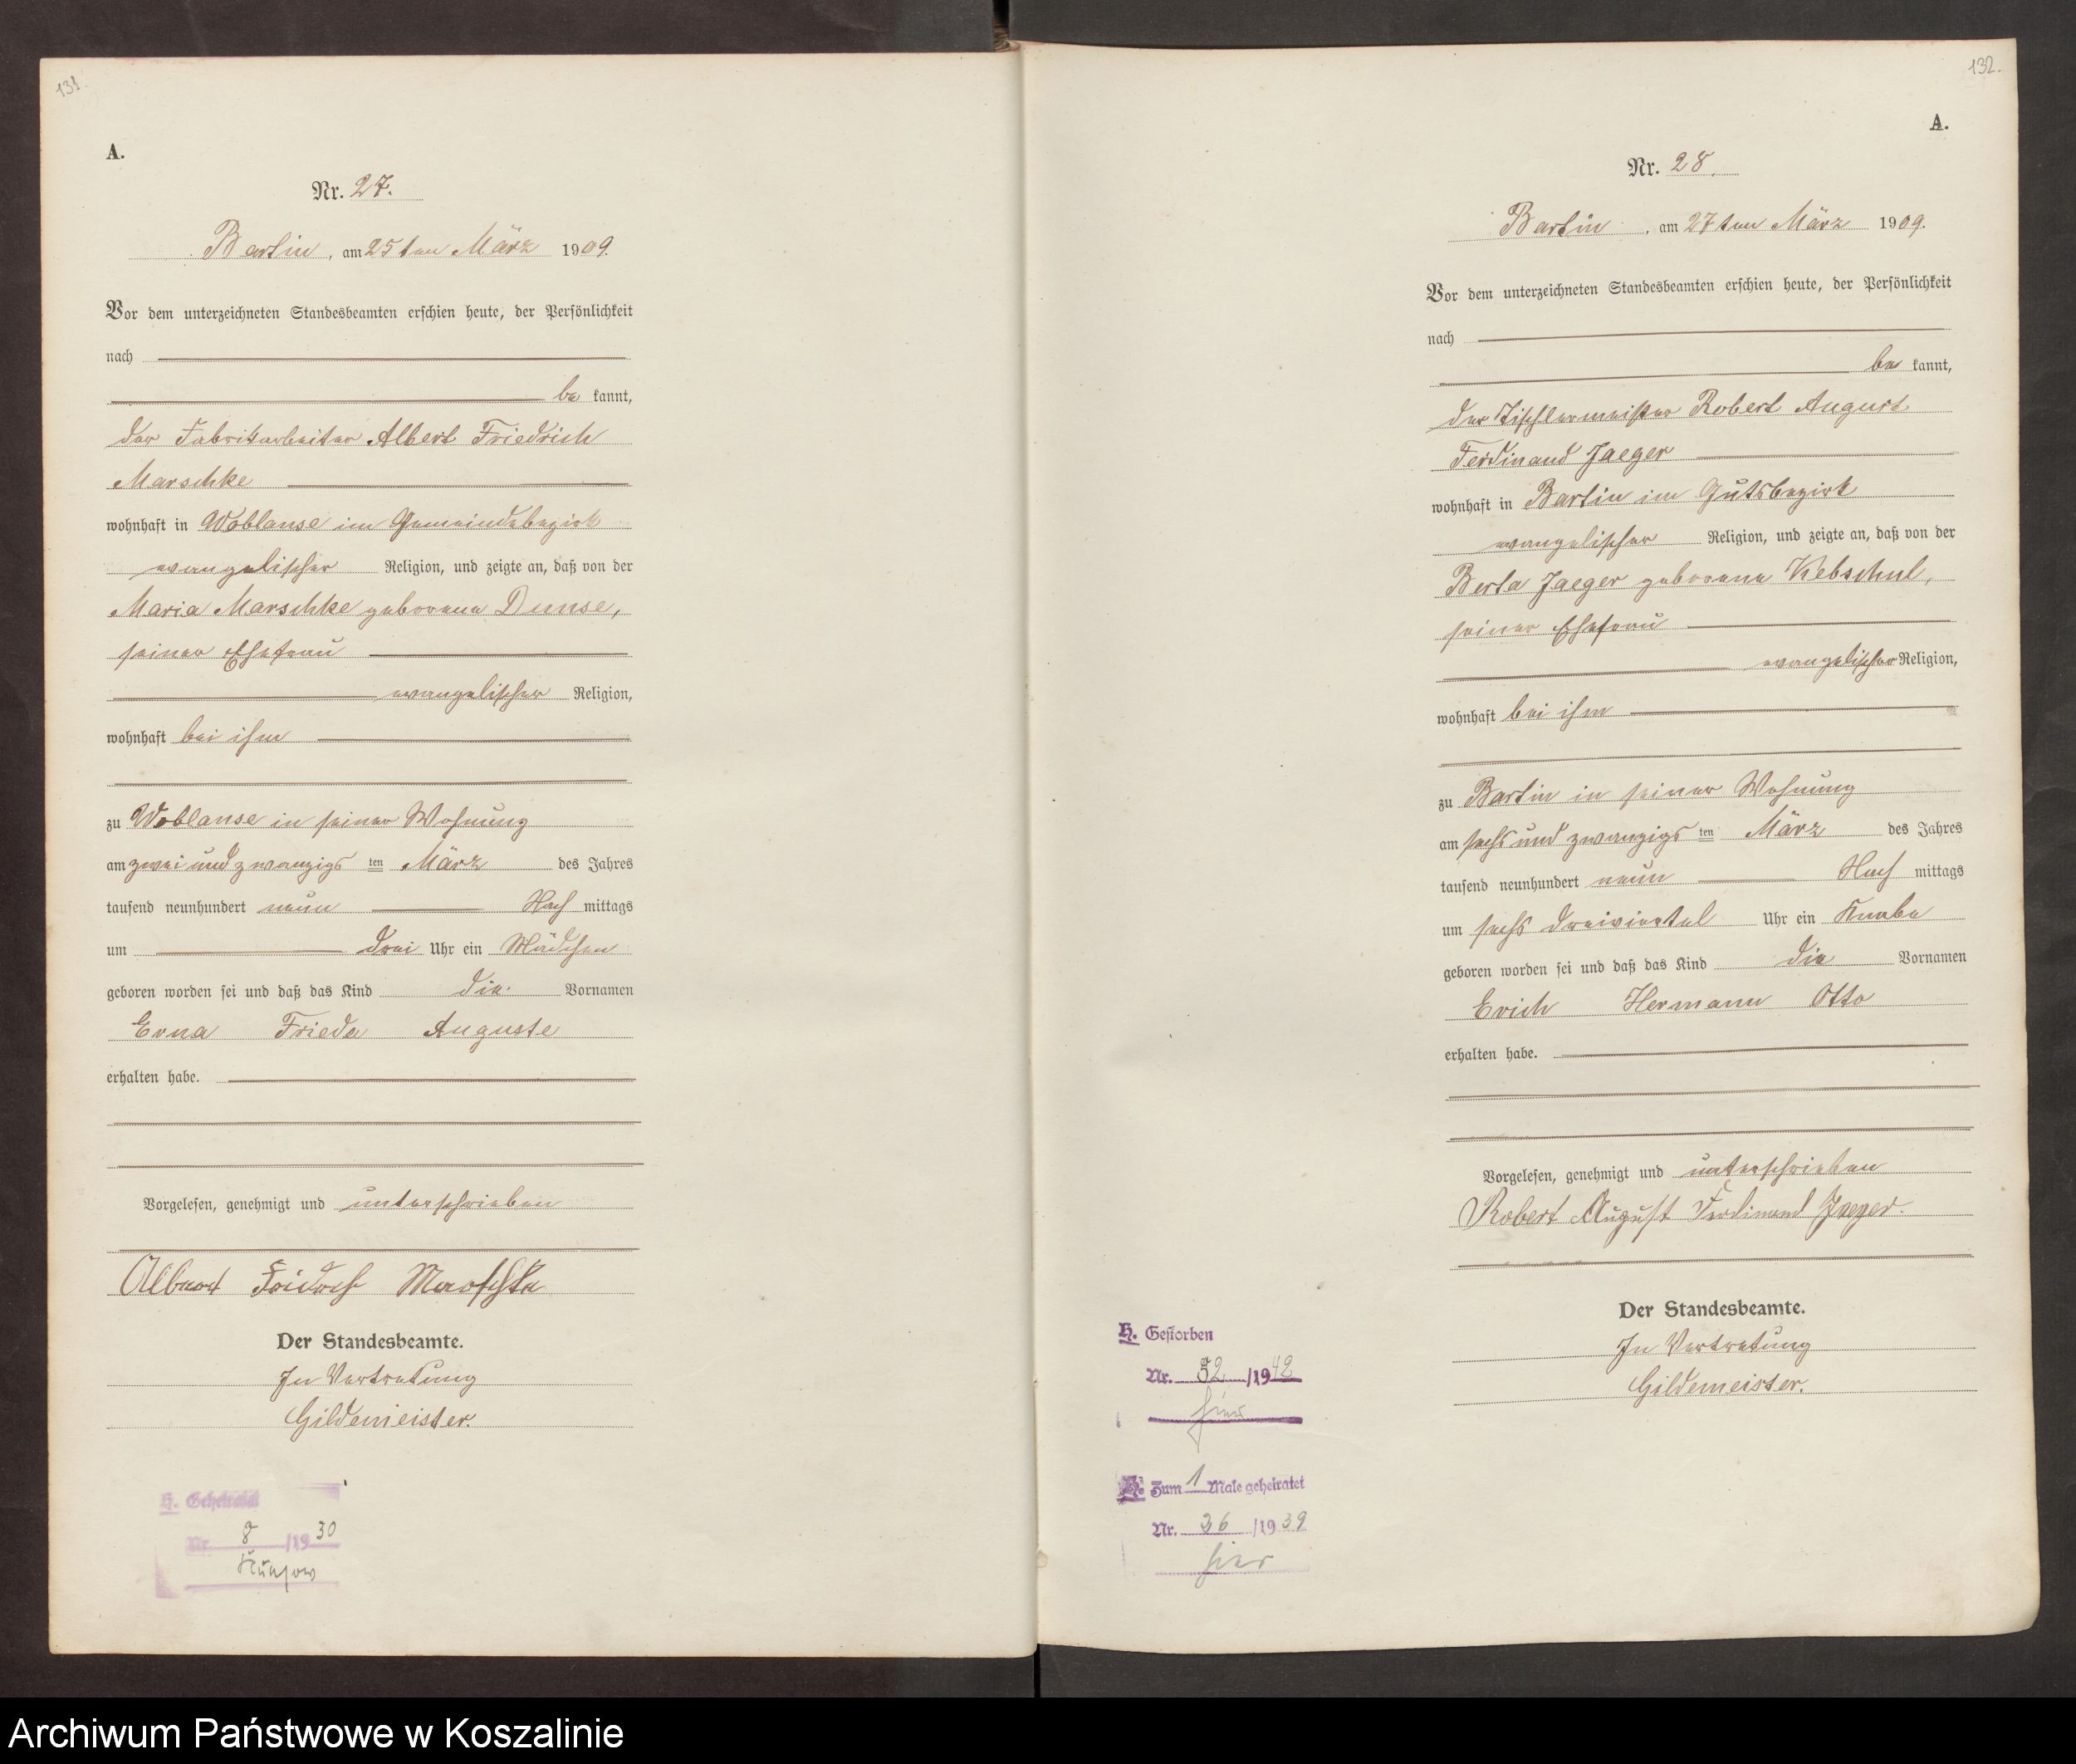 131.
A.
Nr. 27.
Bartin, am 25ten März 1909.
Vor dem unterzeichneten Standesbeamten erschien heute, der Persönlichkeit
nach
be kannt,
der Fabrikarbeiter Albert Friedrich
Marschke
wohnhaft in Woblanse im Gemeindebezirk
evangelischer Religion, und zeigte an, daß von der
Maria Marschke geborene Dunse,
seiner Ehefrau
evangelischer Religion,
wohnhaft bei ihm
zu Woblanse in seiner Wohnung
am zwei und zwanzigs ten März des Jahres
tausend neunhundert neun Nach mittags
um drei Uhr ein Mädchen
geboren worden sei und daß das Kind die Vornamen
Erna Frieda Auguste
erhalten habe.
Vorgelesen, genehmigt und unterschrieben
Albert Friedrich Marschke
Der Standesbeamte.
In Vertretung
Gildemeister.
H. Geheiratet
Nr. 8 /1930
132.
A.
Nr. 28.
Bartin, am 27ten März 1909.
Vor dem unterzeichneten Standesbeamten erschien heute, der Persönlichkeit
nach
be kannt,
der Tischlermeister Robert August
Ferdinand Jaeger
wohnhaft in Bartin im Gutsbezirk
evangelischer Religion, und zeigte an, daß von der
Berta Jaeger geborene Kebschul,
seiner Ehefrau
evangelischer Religion,
wohnhaft bei ihm
zu Bartin in seiner Wohnung
am sechs und zwanzigs ten März des Jahres
tausend neunhundert neun Nach mittags
um sechs dreiviertel Uhr ein Knabe
geboren worden sei und daß das Kind die Vornamen
Erich Hermann Otto
erhalten habe.
Vorgelesen, genehmigt und unterschrieben
Robert August Ferdinand Jaeger.
Der Standesbeamte.
In Vertretung
Gildemeister.
H. Gestorben
Nr. 52 /1942
hier
H. Zum 1 Male geheiratet
Nr. 26 /1939
hier
Archiwum Państwowe w Koszalinie